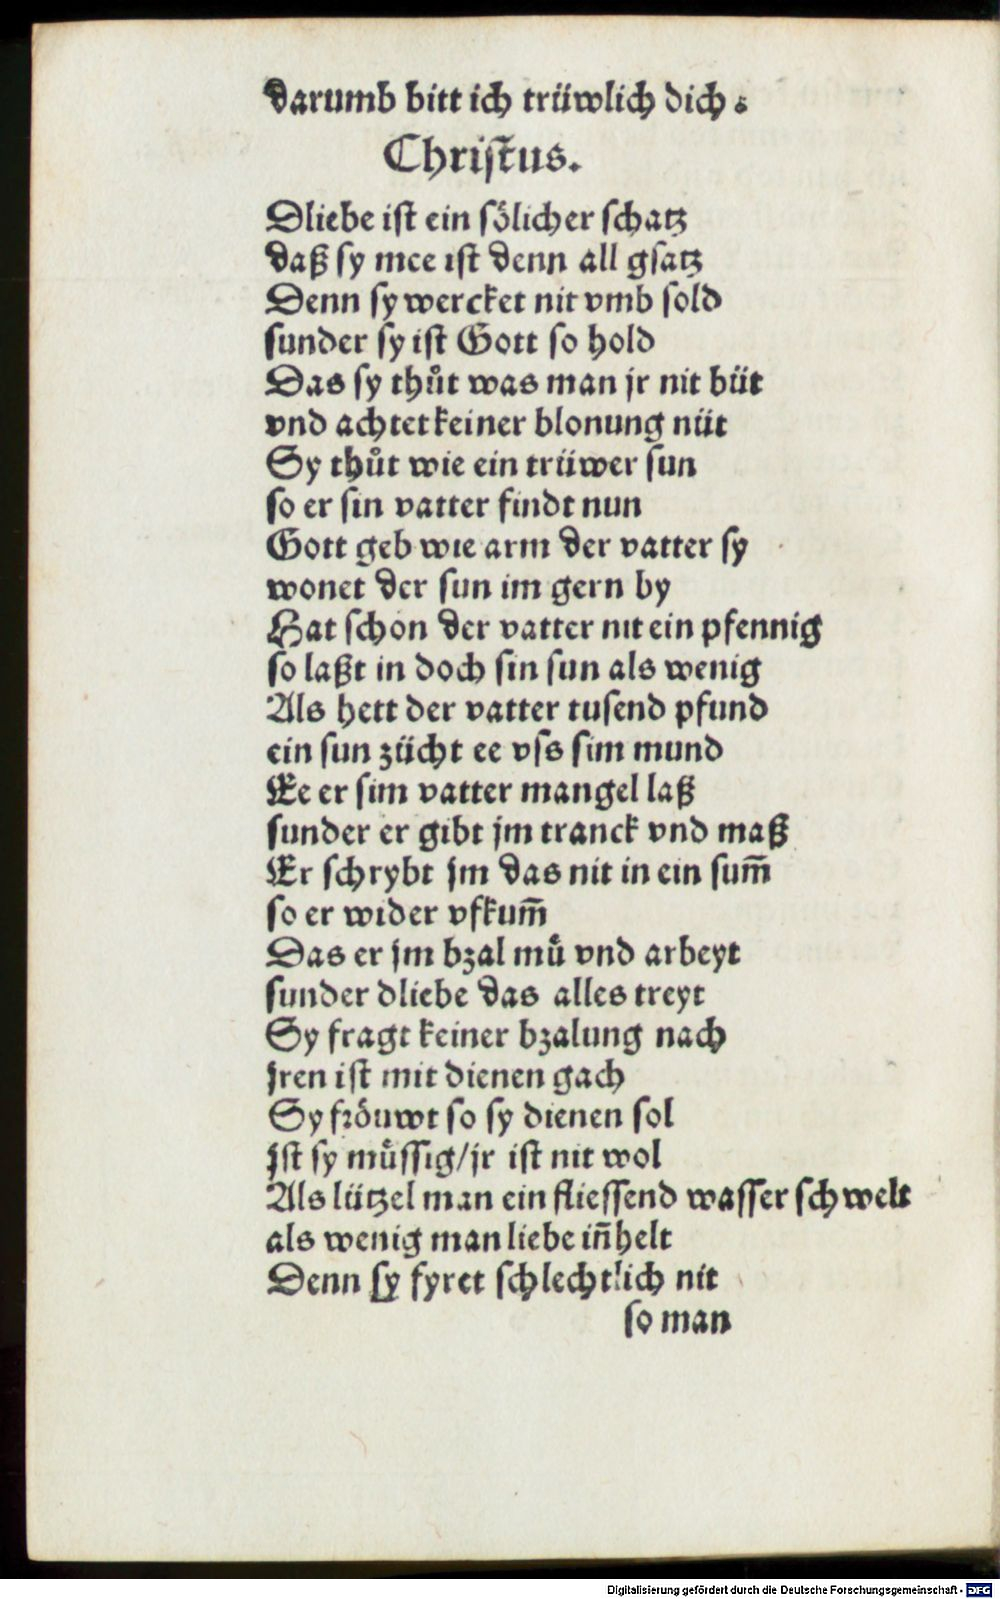 darumb bitt ich trüwlich dich.
Christus.
Dliebe ist ein sölicher schatz
daß sy mee ist denn all gsatz
Denn sy wercket nit vmb sold
sunder sy ist Gott so hold
Das sy thůt was man jr nit büt
vnd achtet keiner blonung nüt
Sy thůt wie ein trüwer sun
so er sin vatter findt nun
Gott geb wie arm der vatter sy
wonet der sun im gern by
Hat schon der vatter nit ein pfennig
so laßt in doch sin sun als wenig
Als hett der vatter tusend pfund
ein sun zücht ee vss sim mund
Ee er sim vatter mangel laß
sunder er gibt jm tranck vnd maß
Er schrybt jm das nit in ein sum̄
so er wider vfkum̄
Das er jm bzal mů vnd arbeyt
sunder dliebe das alles treyt
Sy fragt keiner bzalung nach
jren ist mit dienen gach
Sy fröuwt so sy dienen sol
Ist sy můssig/jr ist nit wol
Als lützel man ein fliessend wasser schwelt
als wenig man liebe in̄helt
Denn sy fyret schlechtlich nit
so man
Digitalisierung gefördert durch die Deutsche Forschungsgemeinschaft - DFG